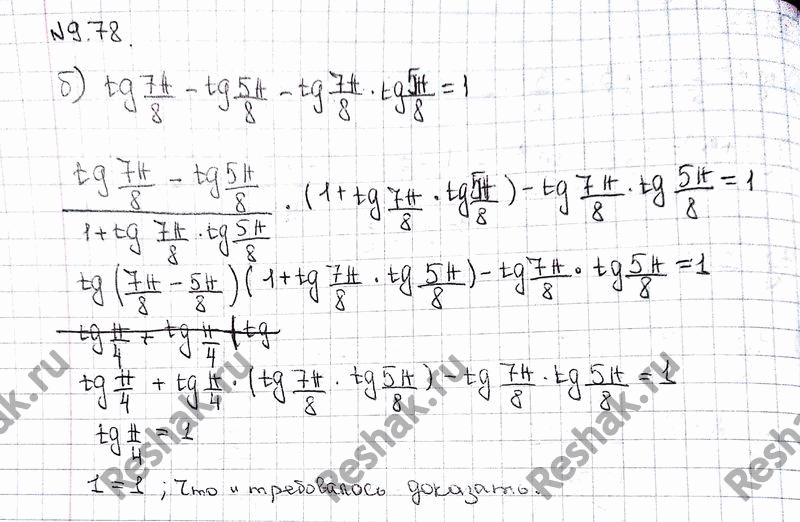 №9.78.
б) tg 7π/8 − tg 5π/8 − tg 7π/8 · tg 5π/8 = 1
(tg 7π/8 − tg 5π/8)/(1 + tg 7π/8 · tg 5π/8) · (1 + tg 7π/8 · tg 5π/8) − tg 7π/8 · tg 5π/8 = 1
tg(7π/8 − 5π/8)(1 + tg 7π/8 · tg 5π/8) − tg 7π/8 · tg 5π/8 = 1
tg π/4 + tg π/4 (tg
tg π/4 + tg π/4 · (tg 7π/8 · tg 5π/8) − tg 7π/8 · tg 5π/8 = 1
tg π/4 = 1
1 = 1 ; Что и требовалось доказать.
Reshak.ru
Reshak.ru
Reshak.ru
Reshak.ru